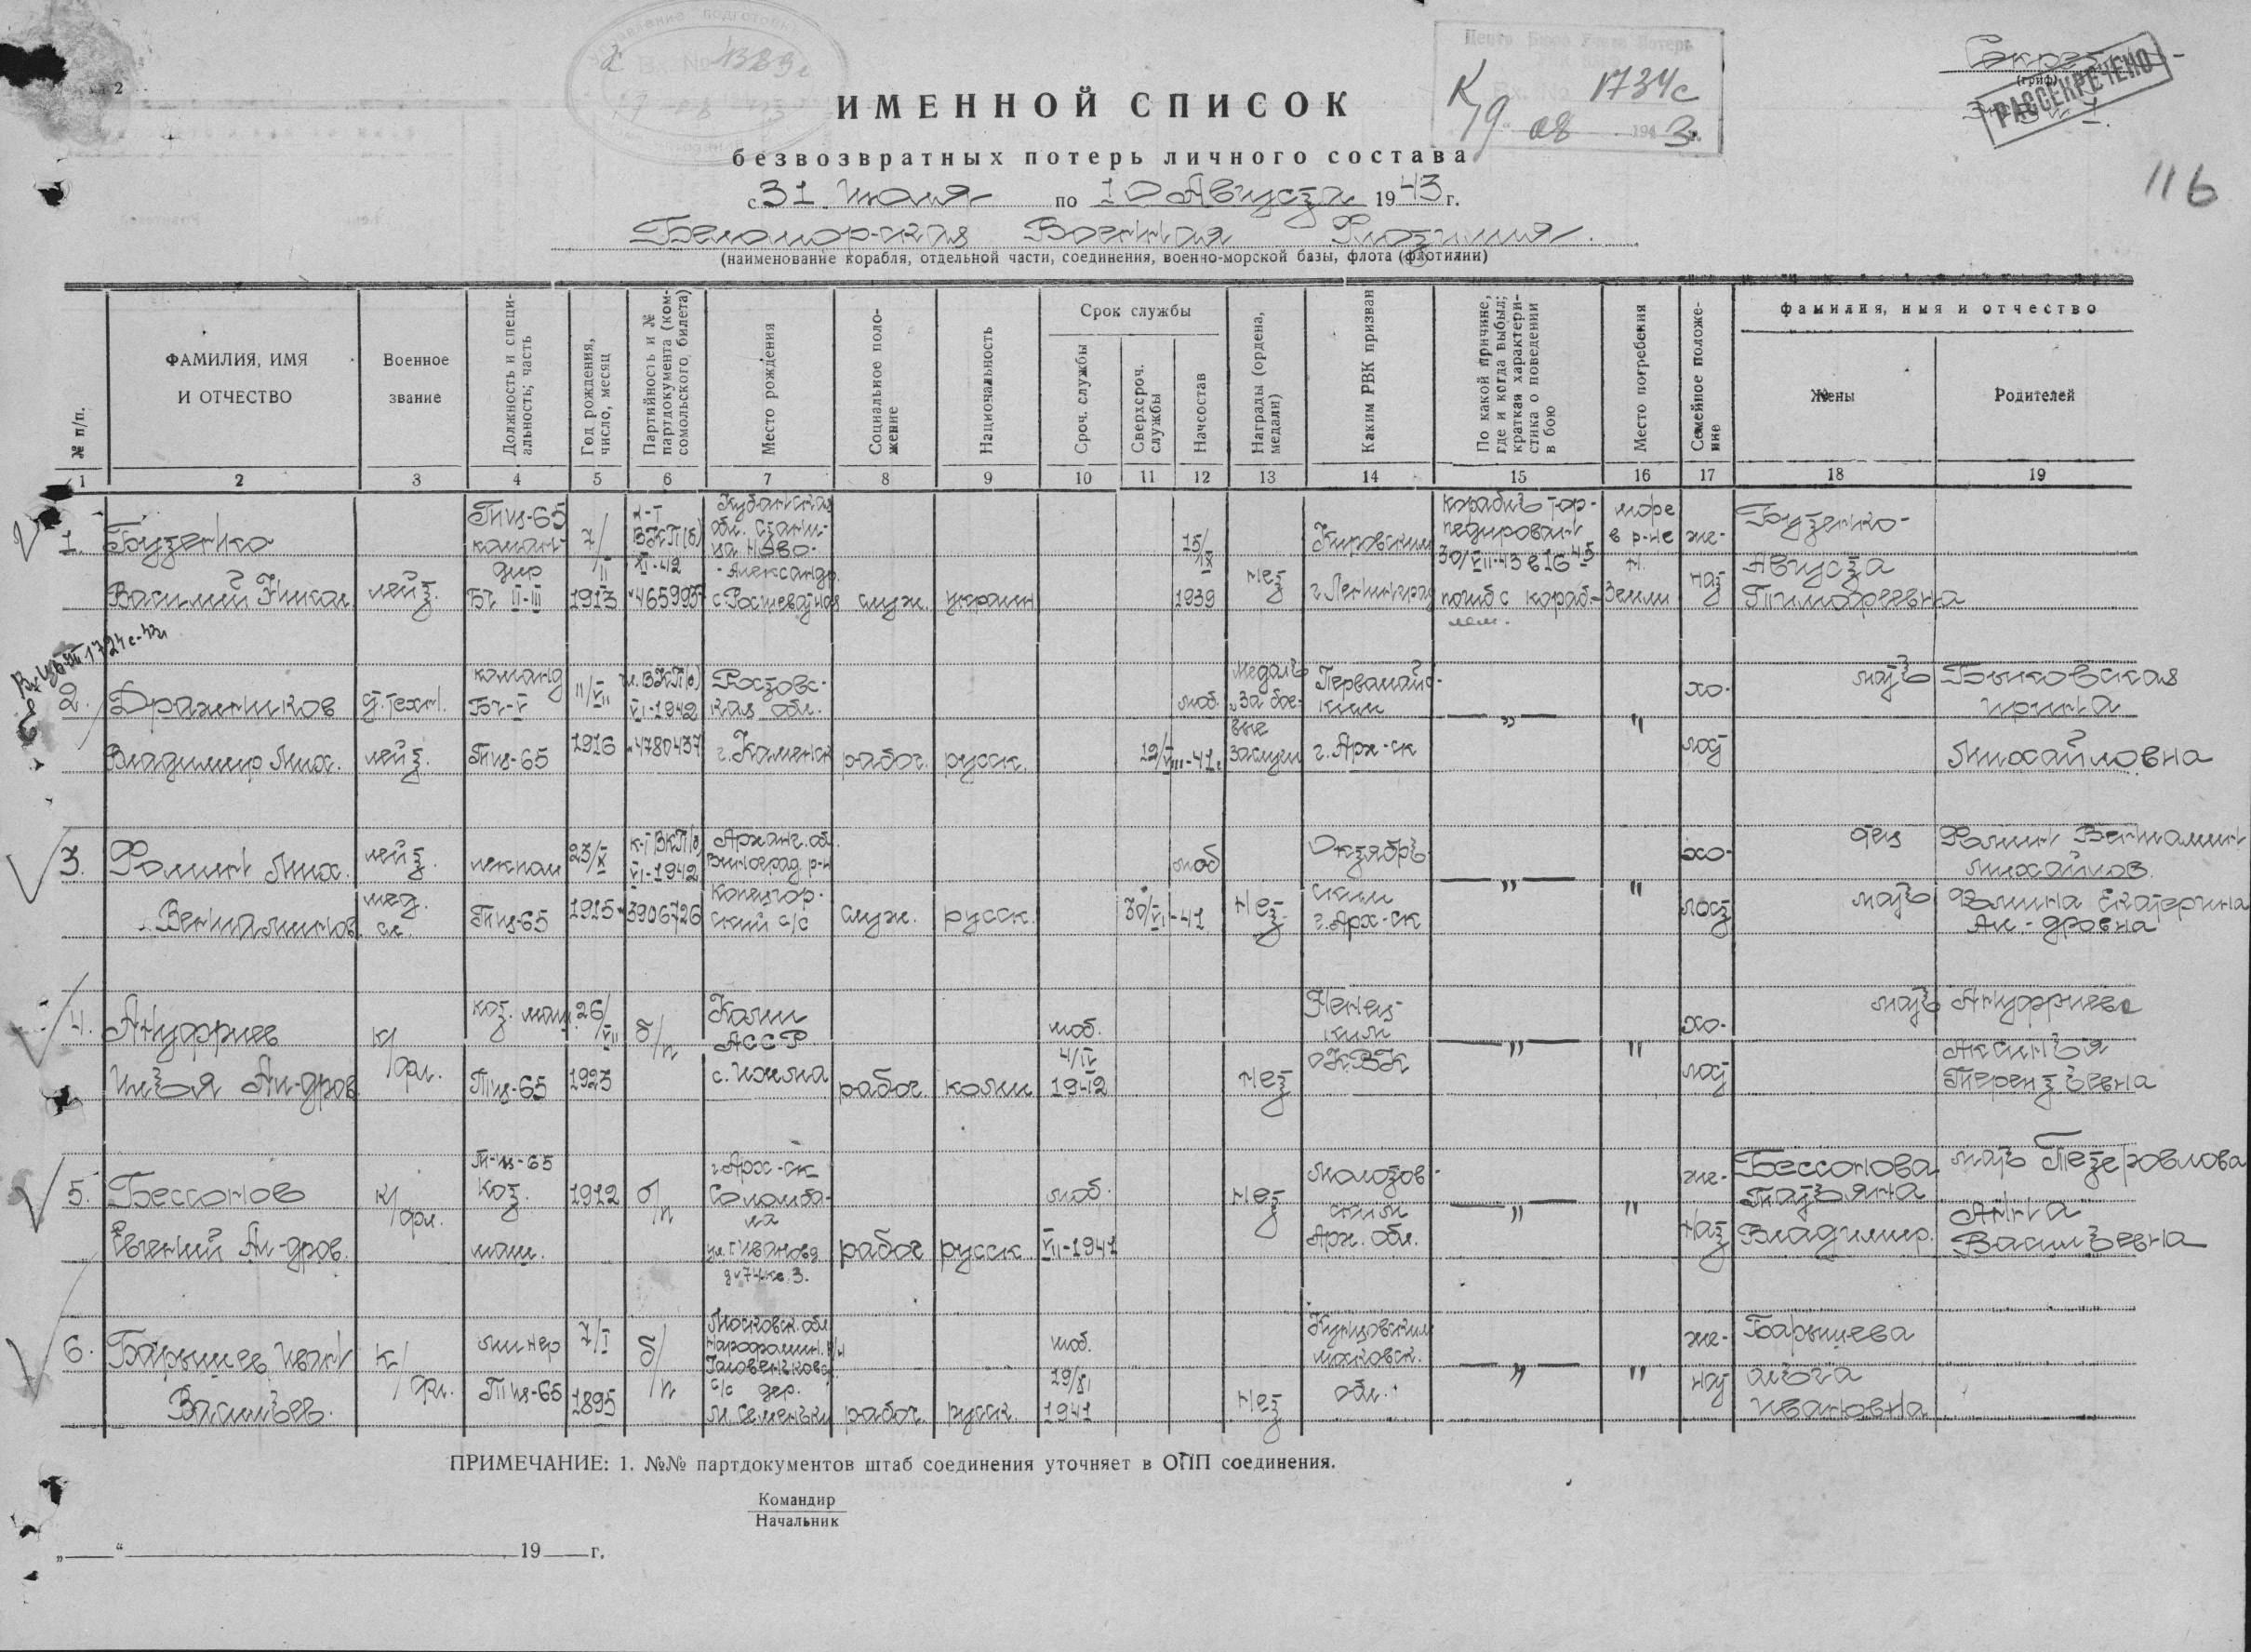 Вх. № 1329с
Центр. Бюро Учета Потерь
Вх. No 1734с
К 19 " 08 194 3 г.
Секретно
(гриф)
РАССЕКРЕЧЕНО
116
ИМЕННОЙ СПИСОК
безвозвратных потерь личного состава
с 31 Июля по 10 Августа 1943 г.
Беломорская Военная Флотилия.
(наименование корабля, отдельной части, соединения, военно-морской базы, флота (флотилии)
№ п/п.
ФАМИЛИЯ, ИМЯ
И ОТЧЕСТВО
Военное
звание
Должность и специ-
альность; часть
Год рождения,
число, месяц
Партийность и №
партдокумента (ком-
сомольского билета)
Место рождения
Социальное поло-
жение
Национальность
Срок службы
Сроч. службы
Сверхсроч.
службы
Начсостав
Награды (ордена,
медали)
Каким РВК призван
По какой причине,
где и когда выбыл;
краткая характери-
стика о поведении
в бою
Место погребения
Семейное положе-
ние
фамилия, имя и отчество
Жены
Родителей
1 2 3 4 5 6 7 8 9 10 11 12 13 14 15 16 17 18 19
1. Бузенко
Василий Никол.
лейт.
Тщ-65
коман-
дир
БЧ II-III
7/II
1913
к-т
ВКП(б)
XI-42
465993
Кубанская
обл. стани-
ца Ново-
-Александр.
служ.
украин
15/IX
1939
нет
Кировским
г. Ленинград
корабль тор-
педирован
30/VII-43 в 16 45
погиб с кораб-
лем.
море
в р-не
Н.
Земли
же-
нат
Бузенко-
Августа
Тимофеевна
Вх 1724с-43г
2. Драженков
Владимир Мих.
техн.
лейт.
команд
БЧ-V
Тщ-65
11/VII
1916
чл. ВКП(б)
VI-1942
4780437
Ростовс-
кая обл.
г. Каменск
рабоч.
русск.
моб.
19/VIII-41г
медаль
"За бое-
вые
заслуги
Первомайс-
ким
г. Арх-ск
— " —
"
хо-
лост
мать
Быковская
Ирина
Михайловна
3. Фомин Мих.
Вениаминов.
лейт.
мед.
сл.
лекпом
Тщ-65
23/X
1915
к-т ВКП(б)
VI-1942
3906726
Арханг. об.
Виноград. р-н
Конецгор-
ский с/с
служ.
русск.
моб
30/VI-41
Нет
Октябрь-
ским
г. Арх-ск
— " —
"
хо-
лост
отец Фомин Вениамин
Михайлов.
мать Фомина Екатерина
Ал.-дровна
4. Ануфриев
Илья Ал-дров
к/фл.
кот. маш.
Тщ-65
26/VII
1923
б/п
Коми
АССР
с. Ижма
рабоч.
коми
моб.
4/IV
1942
нет
Ненец-
ким
ОКВК
— " —
"
хо-
лост
мать Ануфриева
Аксинья
Терентьевна
5. Бессонов
Евгений Ал-дров.
к/фл.
Т-щ-65
кот.
маш.
1912
б/п
г. Арх-ск
Соломба-
ла
рабоч
русск.
моб.
VII-1941
Нет
Молотов-
ским
Арх. обл.
— " —
"
же-
нат
Бессонова
Татьяна
Владимир.
мать
Анна
Васильевна
6. Барышев Иван
Васильев.
к/фл.
минер
Тщ-65
7/I
1895
б/п
Московск. обл
Нарофомин. р/н
с/с дер.
М. Семеньки
рабоч.
русск.
моб.
1941
Нет
Кунцовским
московск.
обл.
— " —
"
же-
нат
Барышева
Ольга
Ивановна
ПРИМЕЧАНИЕ: 1. №№ партдокументов штаб соединения уточняет в ОПП соединения.
Командир
Начальник
„ “ 19 г.